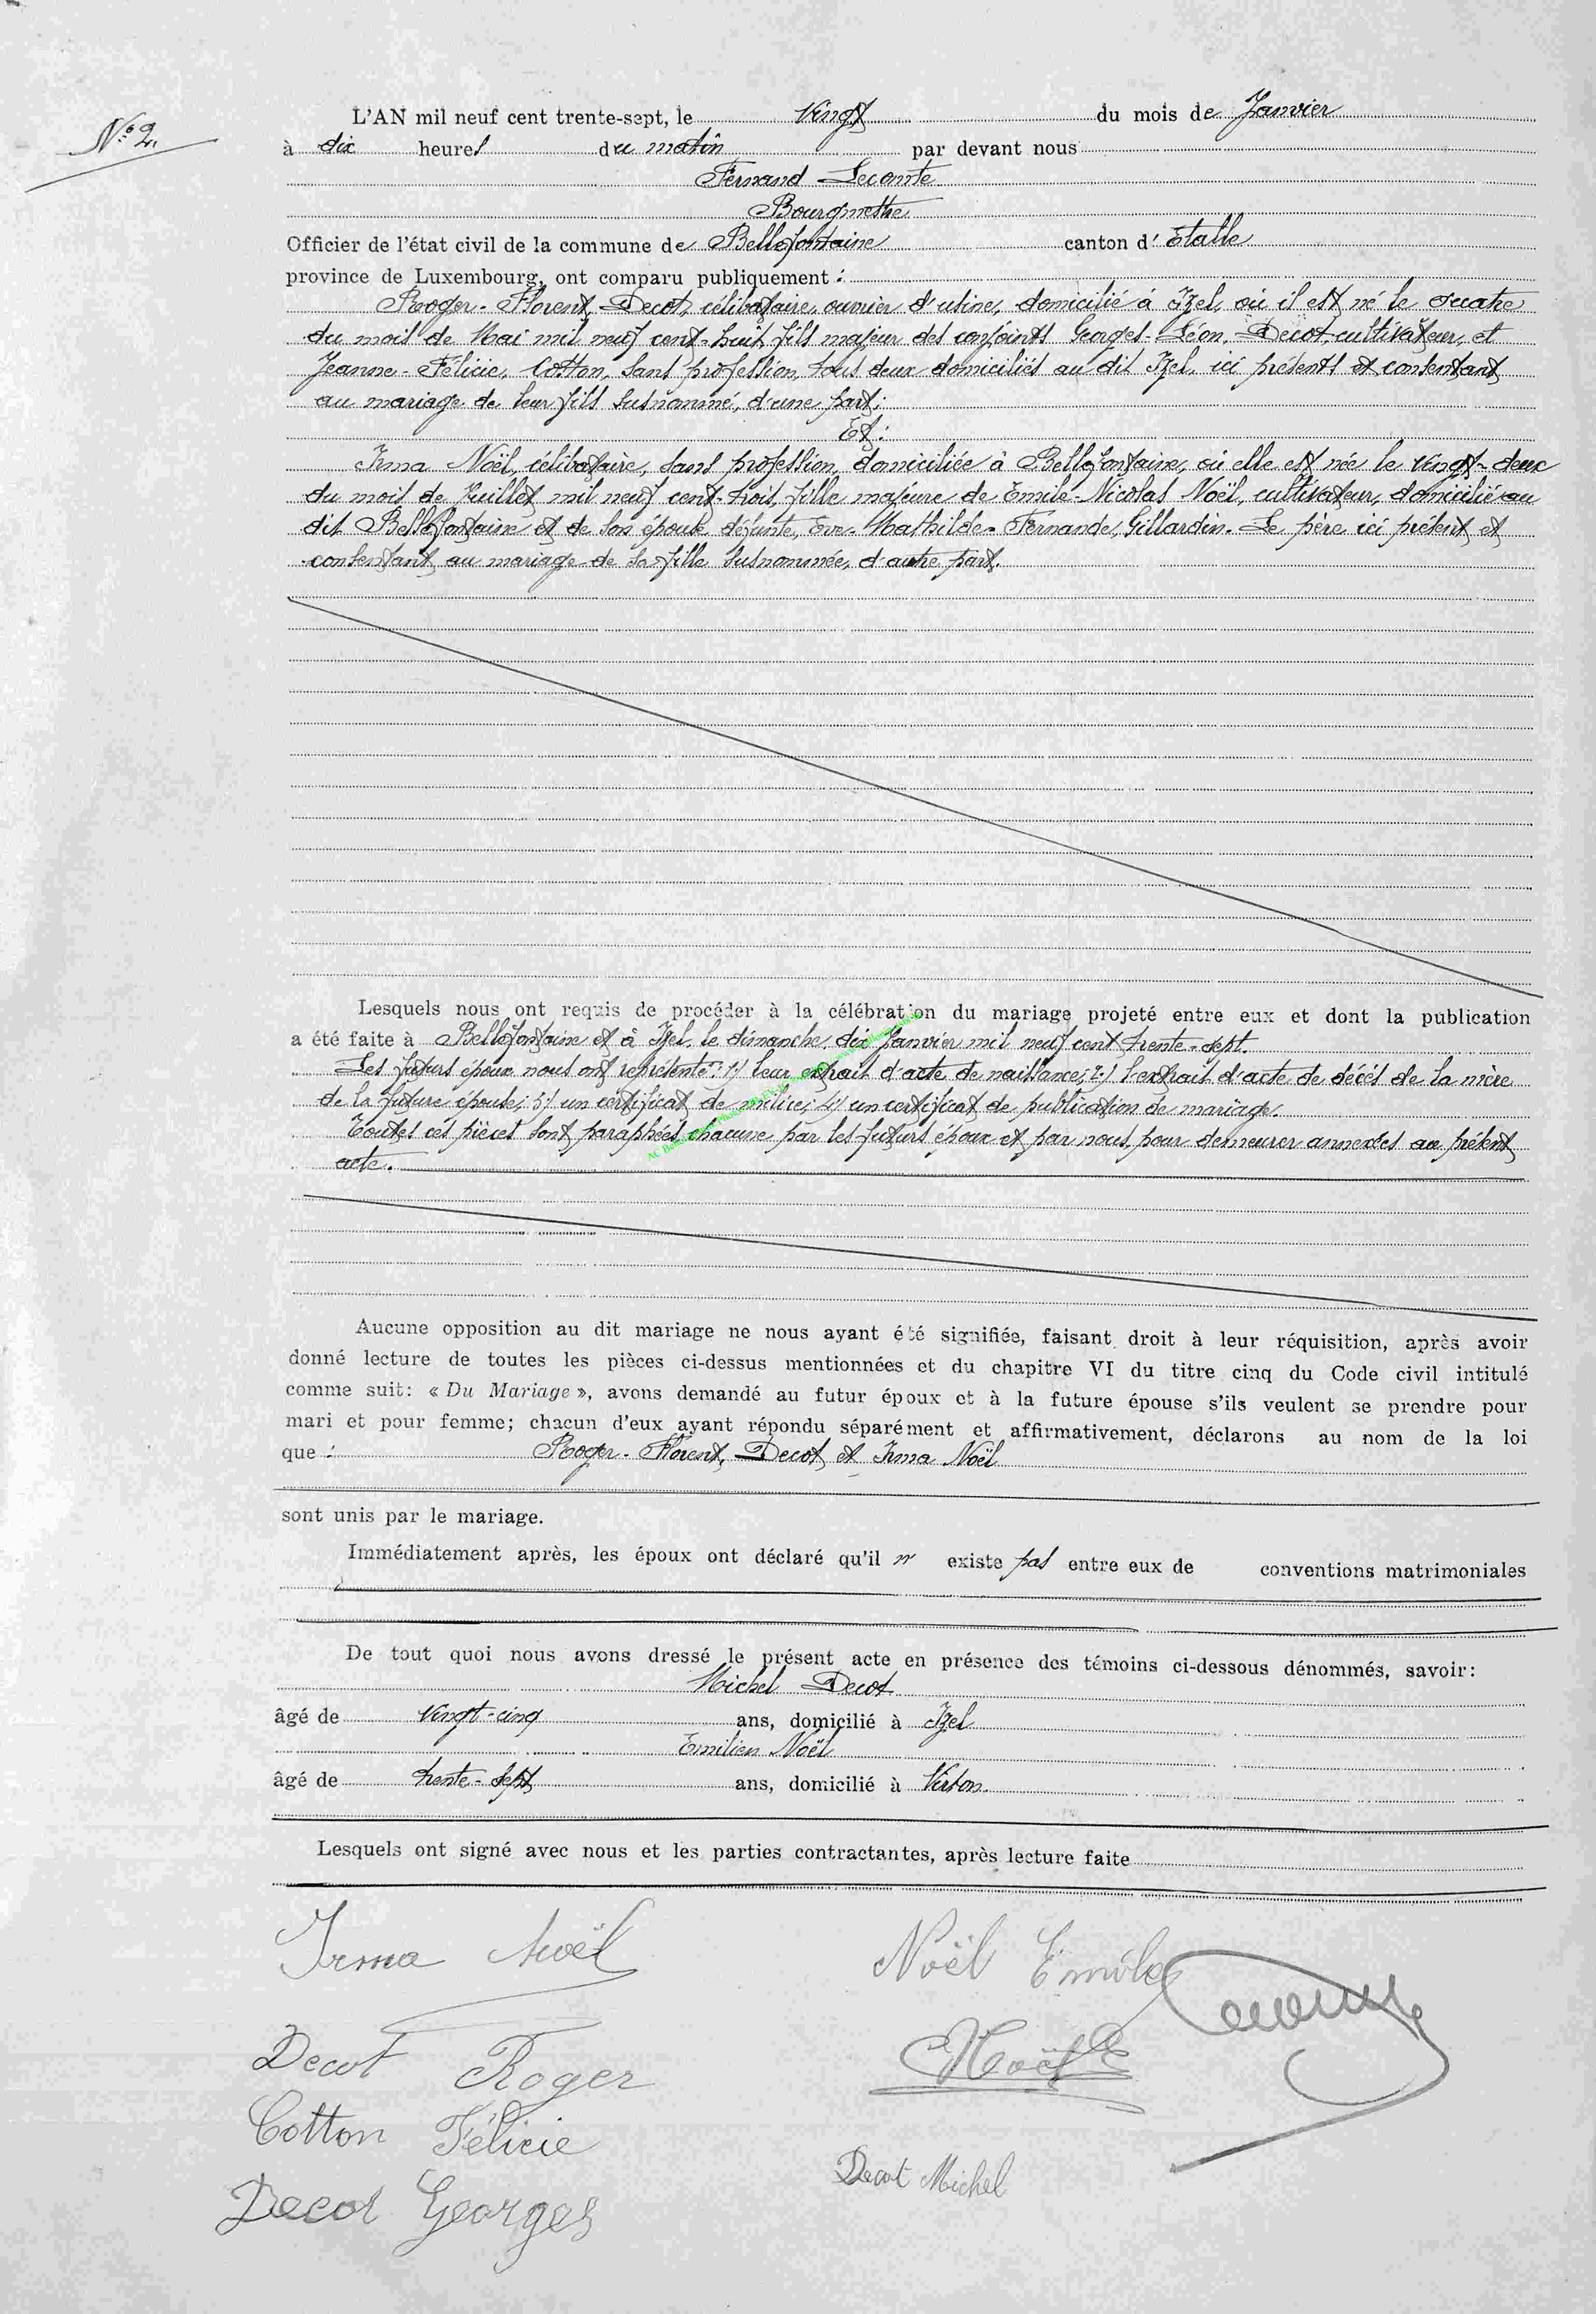 N° 2.
L'AN mil neuf cent trente-sept, le Vingt du mois de Janvier
à dix heures du matin par devant nous
Fernand Lecomte
Bourgmestre
Officier de l'état civil de la commune de Bellefontaine canton d'Etalle
province de Luxembourg, ont comparu publiquement :
Roger-Florent, Decot, célibataire, ouvrier d'usine, domicilié à Izel, où il est né le quatre
du mois de Mai mil neuf cent-huit, fils majeur des conjoints Georges-Léon, Decot, cultivateur, et
Jeanne-Félicie, Cotton, sans profession, tous deux domiciliés au dit Izel, ici présents et consentant
au mariage de leur fils susnommé, d'une part;
Et:
Irma Noël, célibataire, sans profession, domiciliée à Bellefontaine, où elle est née le vingt-deux
du mois de Juillet mil neuf cent-trois, fille majeure de Emile-Nicolas Noël, cultivateur, domicilié au
dit Bellefontaine et de son épouse défunte, Eve-Mathilde-Fernande, Gillardin. Le père ici présent et
consentant au mariage de sa fille susnommée, d'autre part.
Lesquels nous ont requis de procéder à la célébration du mariage projeté entre eux et dont la publication
a été faite à Bellefontaine et à Izel, le dimanche, dix Janvier mil neuf cent trente-sept.
Les futurs époux nous ont représenté: 1) leur extrait d'acte de naissance; 2) l'extrait d'acte de décès de la mère
de la future épouse; 3) un certificat de milice; 4) un certificat de publication de mariage.
Toutes ces pièces sont paraphées chacune par les futurs époux et par nous, pour demeurer annexées au présent
acte.
Aucune opposition au dit mariage ne nous ayant été signifiée, faisant droit à leur réquisition, après avoir
donné lecture de toutes les pièces ci-dessus mentionnées et du chapitre VI du titre cinq du Code civil intitulé
comme suit: « Du Mariage », avons demandé au futur époux et à la future épouse s'ils veulent se prendre pour
mari et pour femme; chacun d'eux ayant répondu séparément et affirmativement, déclarons au nom de la loi
que : Roger-Florent, Decot et Irma Noël
sont unis par le mariage.
Immédiatement après, les époux ont déclaré qu'il n' existe pas entre eux de conventions matrimoniales
De tout quoi nous avons dressé le présent acte en présence des témoins ci-dessous dénommés, savoir:
Michel Decot
âgé de vingt-cinq ans, domicilié à Izel
Emilien Noël
âgé de trente-sept ans, domicilié à Virton.
Lesquels ont signé avec nous et les parties contractantes, après lecture faite
Irma Noël Noël Emile
Decot Roger Noël E
Cotton Félicie
Decot Michel
Decot Georges